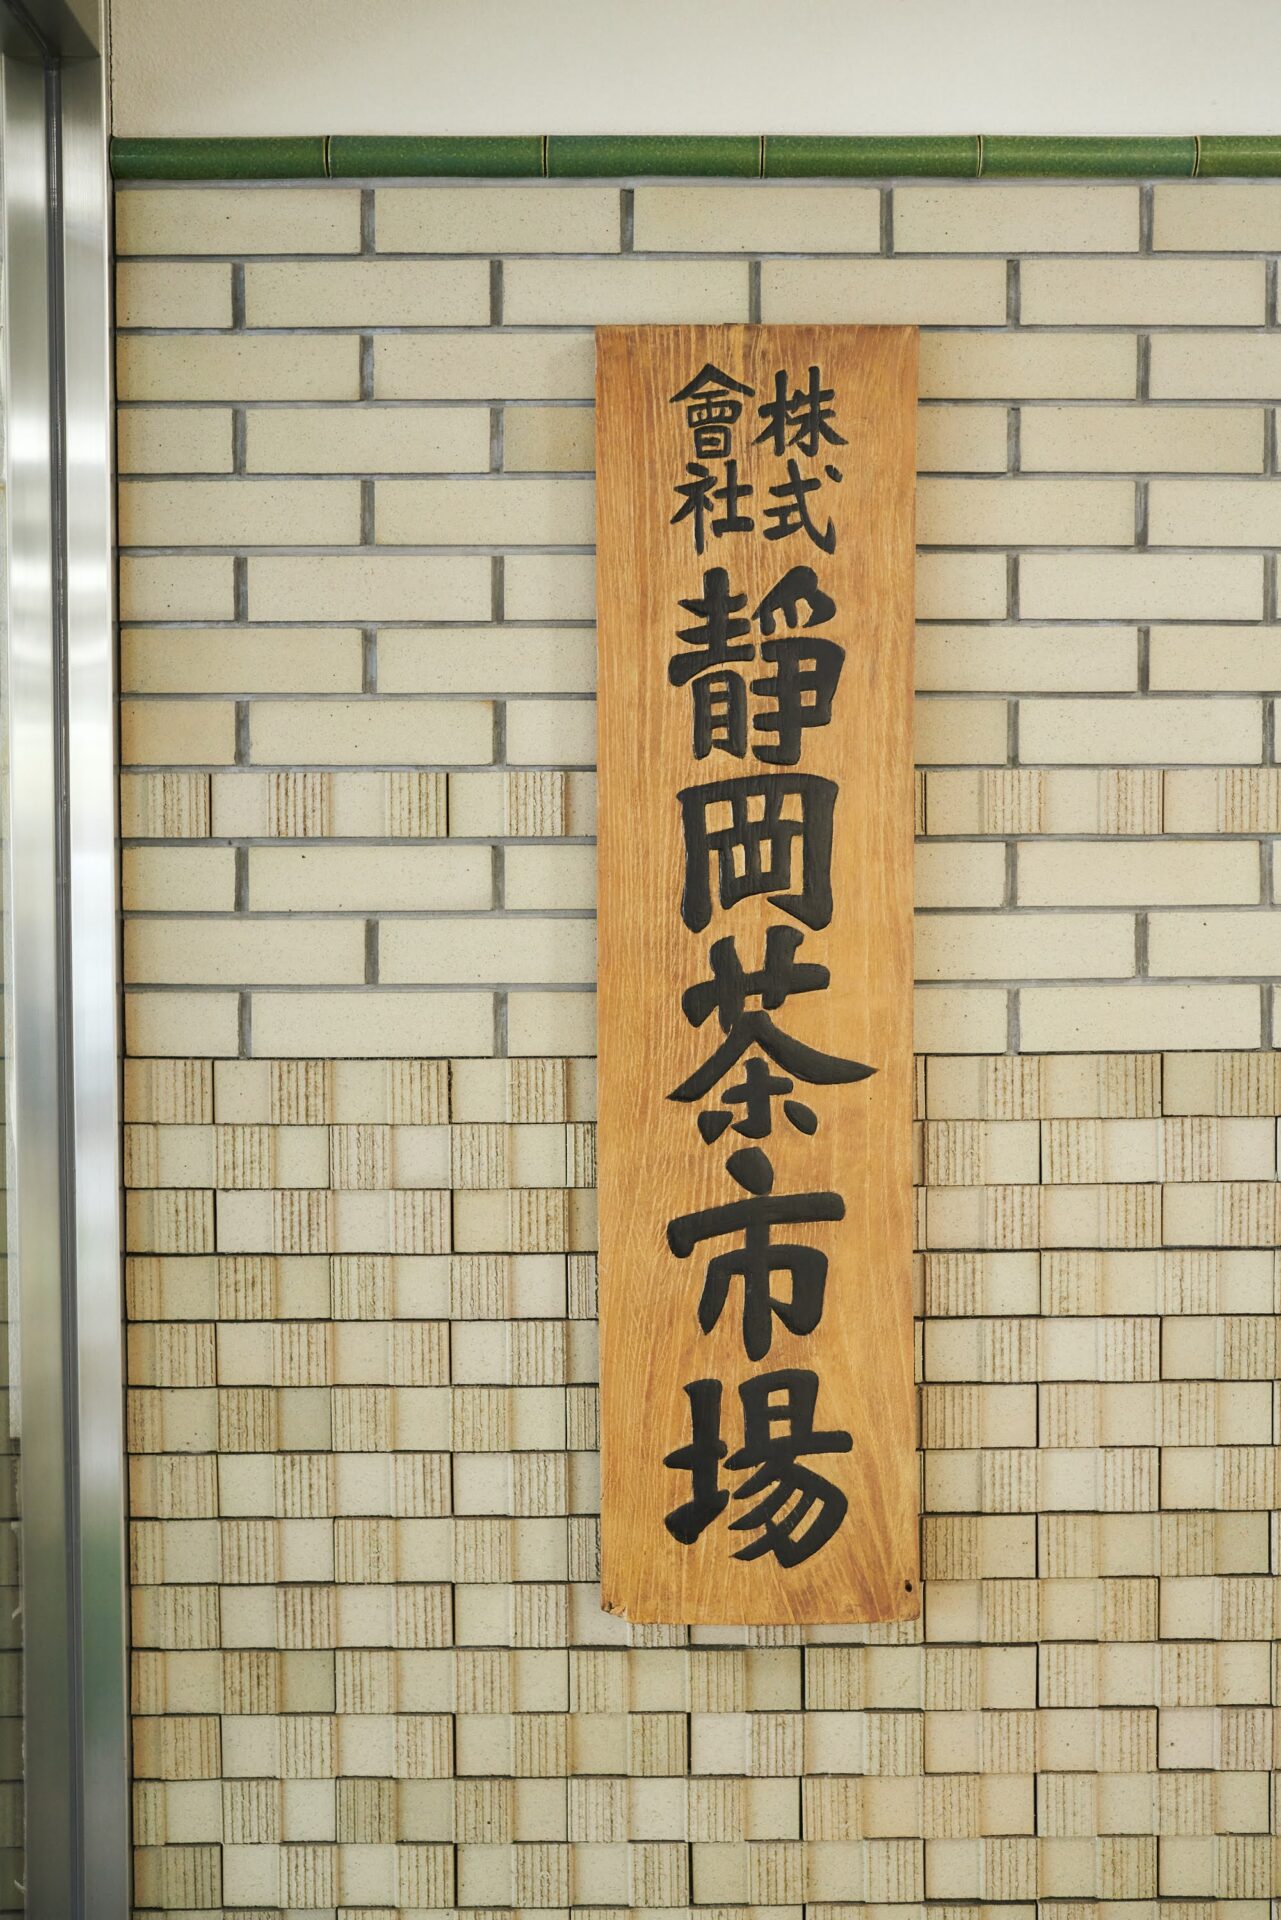 株式
會社
靜岡茶市場